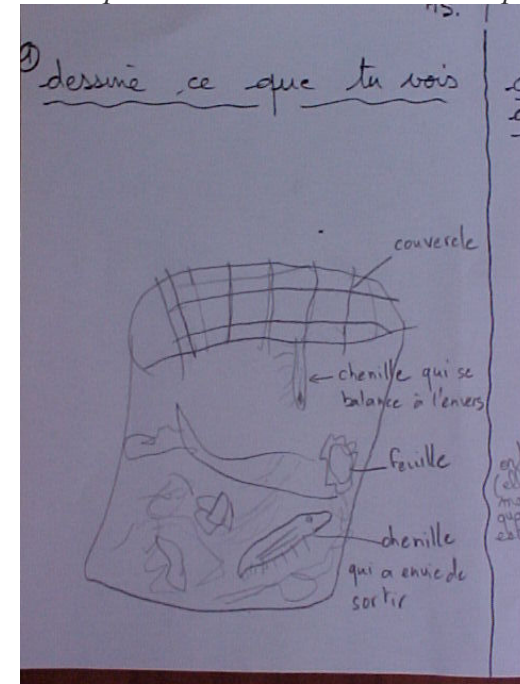 ①
dessine ce que tu vois
couvercle
← chenille qui se
balance à l'envers
feuille
chenille
qui a envie de
sortir